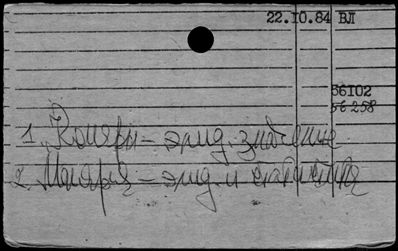 22.10.84 ВЛ
56102
56258
1. Комары – эпид. значение
2. Малярия – эпид. и статистика